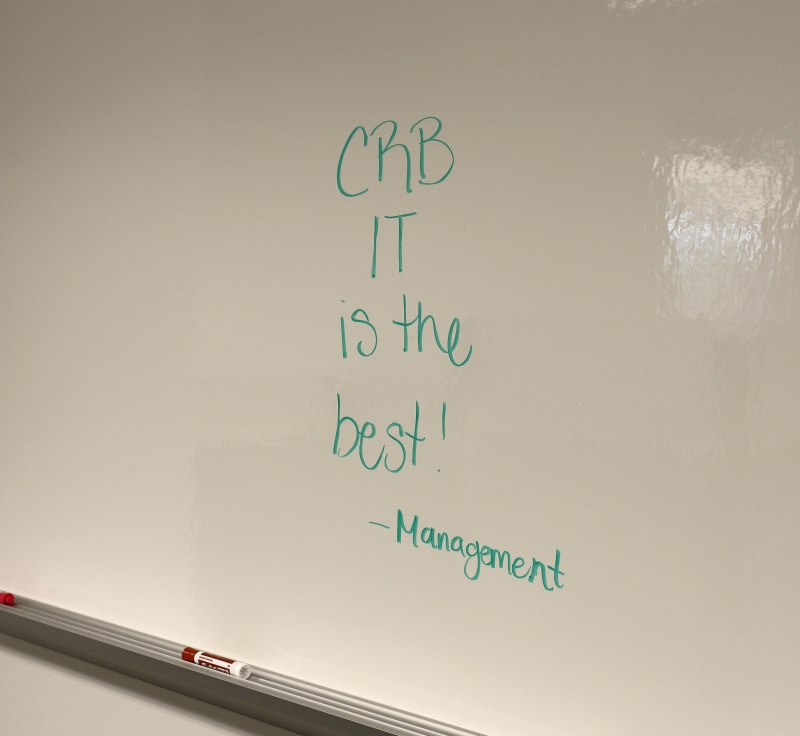 CRB
IT
is the
best!
-Management